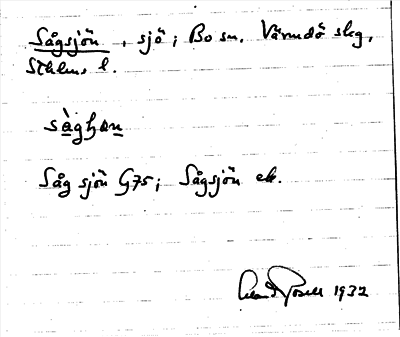 Sågsjön, sjö; Bo sn. Värmdö skg,
Sthlms l.
sàghan
Såg sjön G75; Sågsjön ek.
1932